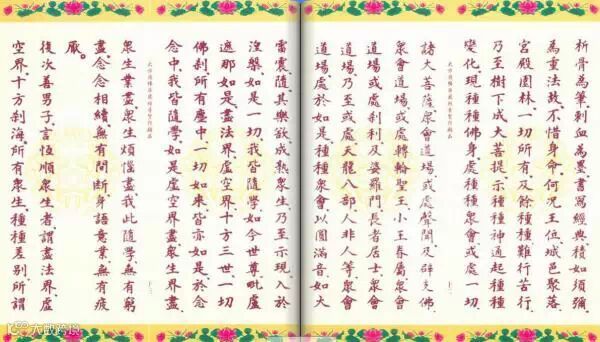 析骨為筆刺血為墨、書寫經典、積如須彌、
為重法故、不惜身命、何況王位、城邑聚落、
宮殿園林、一切所有、及餘種種難行苦行、
乃至樹下成大菩提、示種種神通、起種種
變化、現種種佛身、處種種眾會、或處一切
大方廣佛華嚴經普賢行願品
諸大菩薩眾會道場、或處聲聞及辟支佛、
眾會道場、或處轉輪聖王小王眷屬眾會
道場、或處剎利及婆羅門長者居士、眾會
道場、乃至或處天龍八部人非人等、眾會
道場、處於如是種種眾會、以圓滿音、如大
雷震、隨其樂欲、成熟眾生、乃至示現、入於
涅槃、如是一切、我皆隨學、如今世尊毗盧
遮那、如是盡法界、虛空界、十方三世一切
佛剎、所有塵中、一切如來、皆亦如是、於念
念中、我皆隨學、如是虛空界盡、眾生界盡、
大方廣佛華嚴經普賢行願品
眾生業盡、眾生煩惱盡、我此隨學、無有窮
盡、念念相續、無有間斷、身語意業、無有疲
厭。
復次善男子、言恆順眾生者、謂盡法界、虛
空界、十方剎海、所有眾生、種種差別、所謂